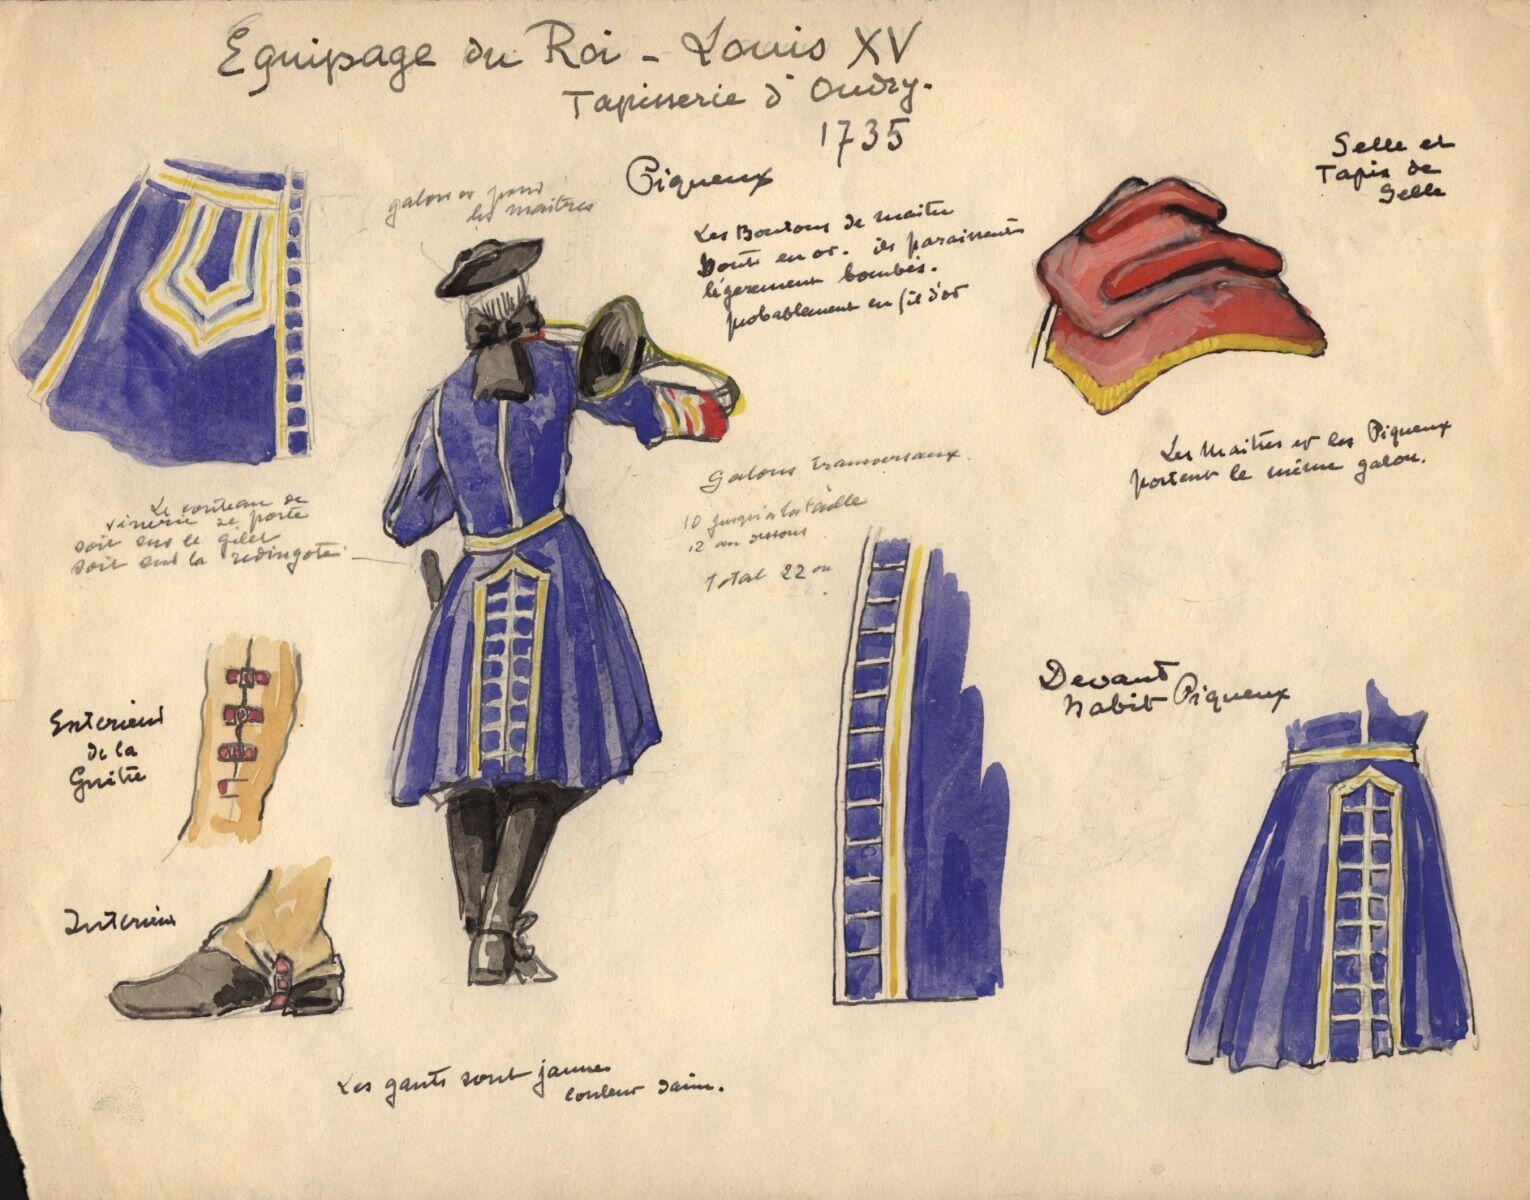 Equipage du Roi - Louis XV
Tapisserie d'Oudry.
1735
Piqueux
galon or pour
les maitres
Les Boutons de maitre
sont en or. ils paraissent
légèrement bombés.
probablement en fil d'or
Selle et
Tapis de
Selle
Les Maitres et les Piqueux
portent le même galon.
Galons transversaux.
10 jusqu'a la taille
12 au dessous
Total 22
22.
Le couteau de
venerie se porte
soit sur le gilet
soit sur la redingote
Exterieur
de la
Guêtre
Interieur
Devant
habit Piqueux
Les gants sont jaunes
couleur daim.